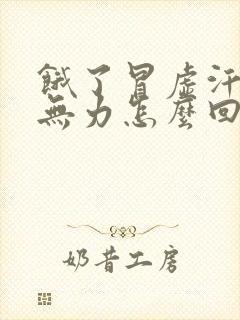 餓了冒虛汗
無力怎麼回
奶昔工房